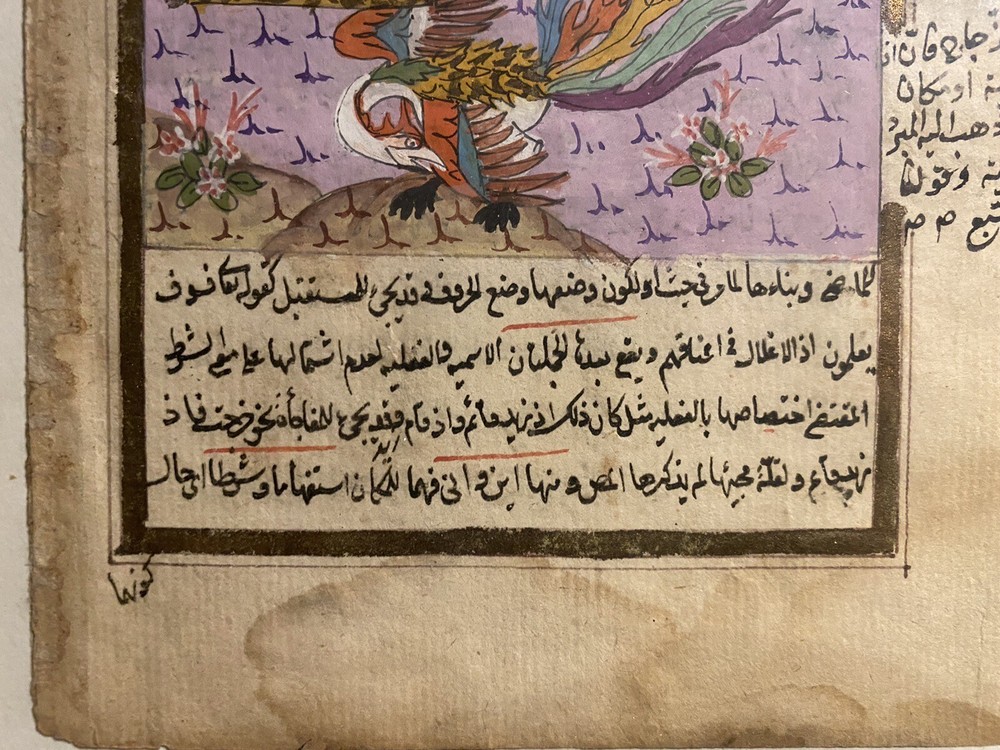 للماضى وبناءها لما مر فى حيث او لكون وضعها وضع الحروف وقد يجئ للمستقبل كقوله تعا فسوف
يعلمون اذ الاغلال فى اعناقهم ويقع بعدها الجملتان الاسميه والفعليه لعدم اشتمالها على معنى الشرط
المقتضى اختصاصها بالفعليه مثل كان ذلك اذ زيد قائم واذ قام زيد وقد يجئ للمفاجأة نحو خرجت فاذ
زيد قائم ولقلّة مجيئها لم يذكرها المص ومنها اين وانى فهما للمكان استفهاما وشرطا اى حال
كونهما
زجاج فان
او مكان
هب اليه المبرد